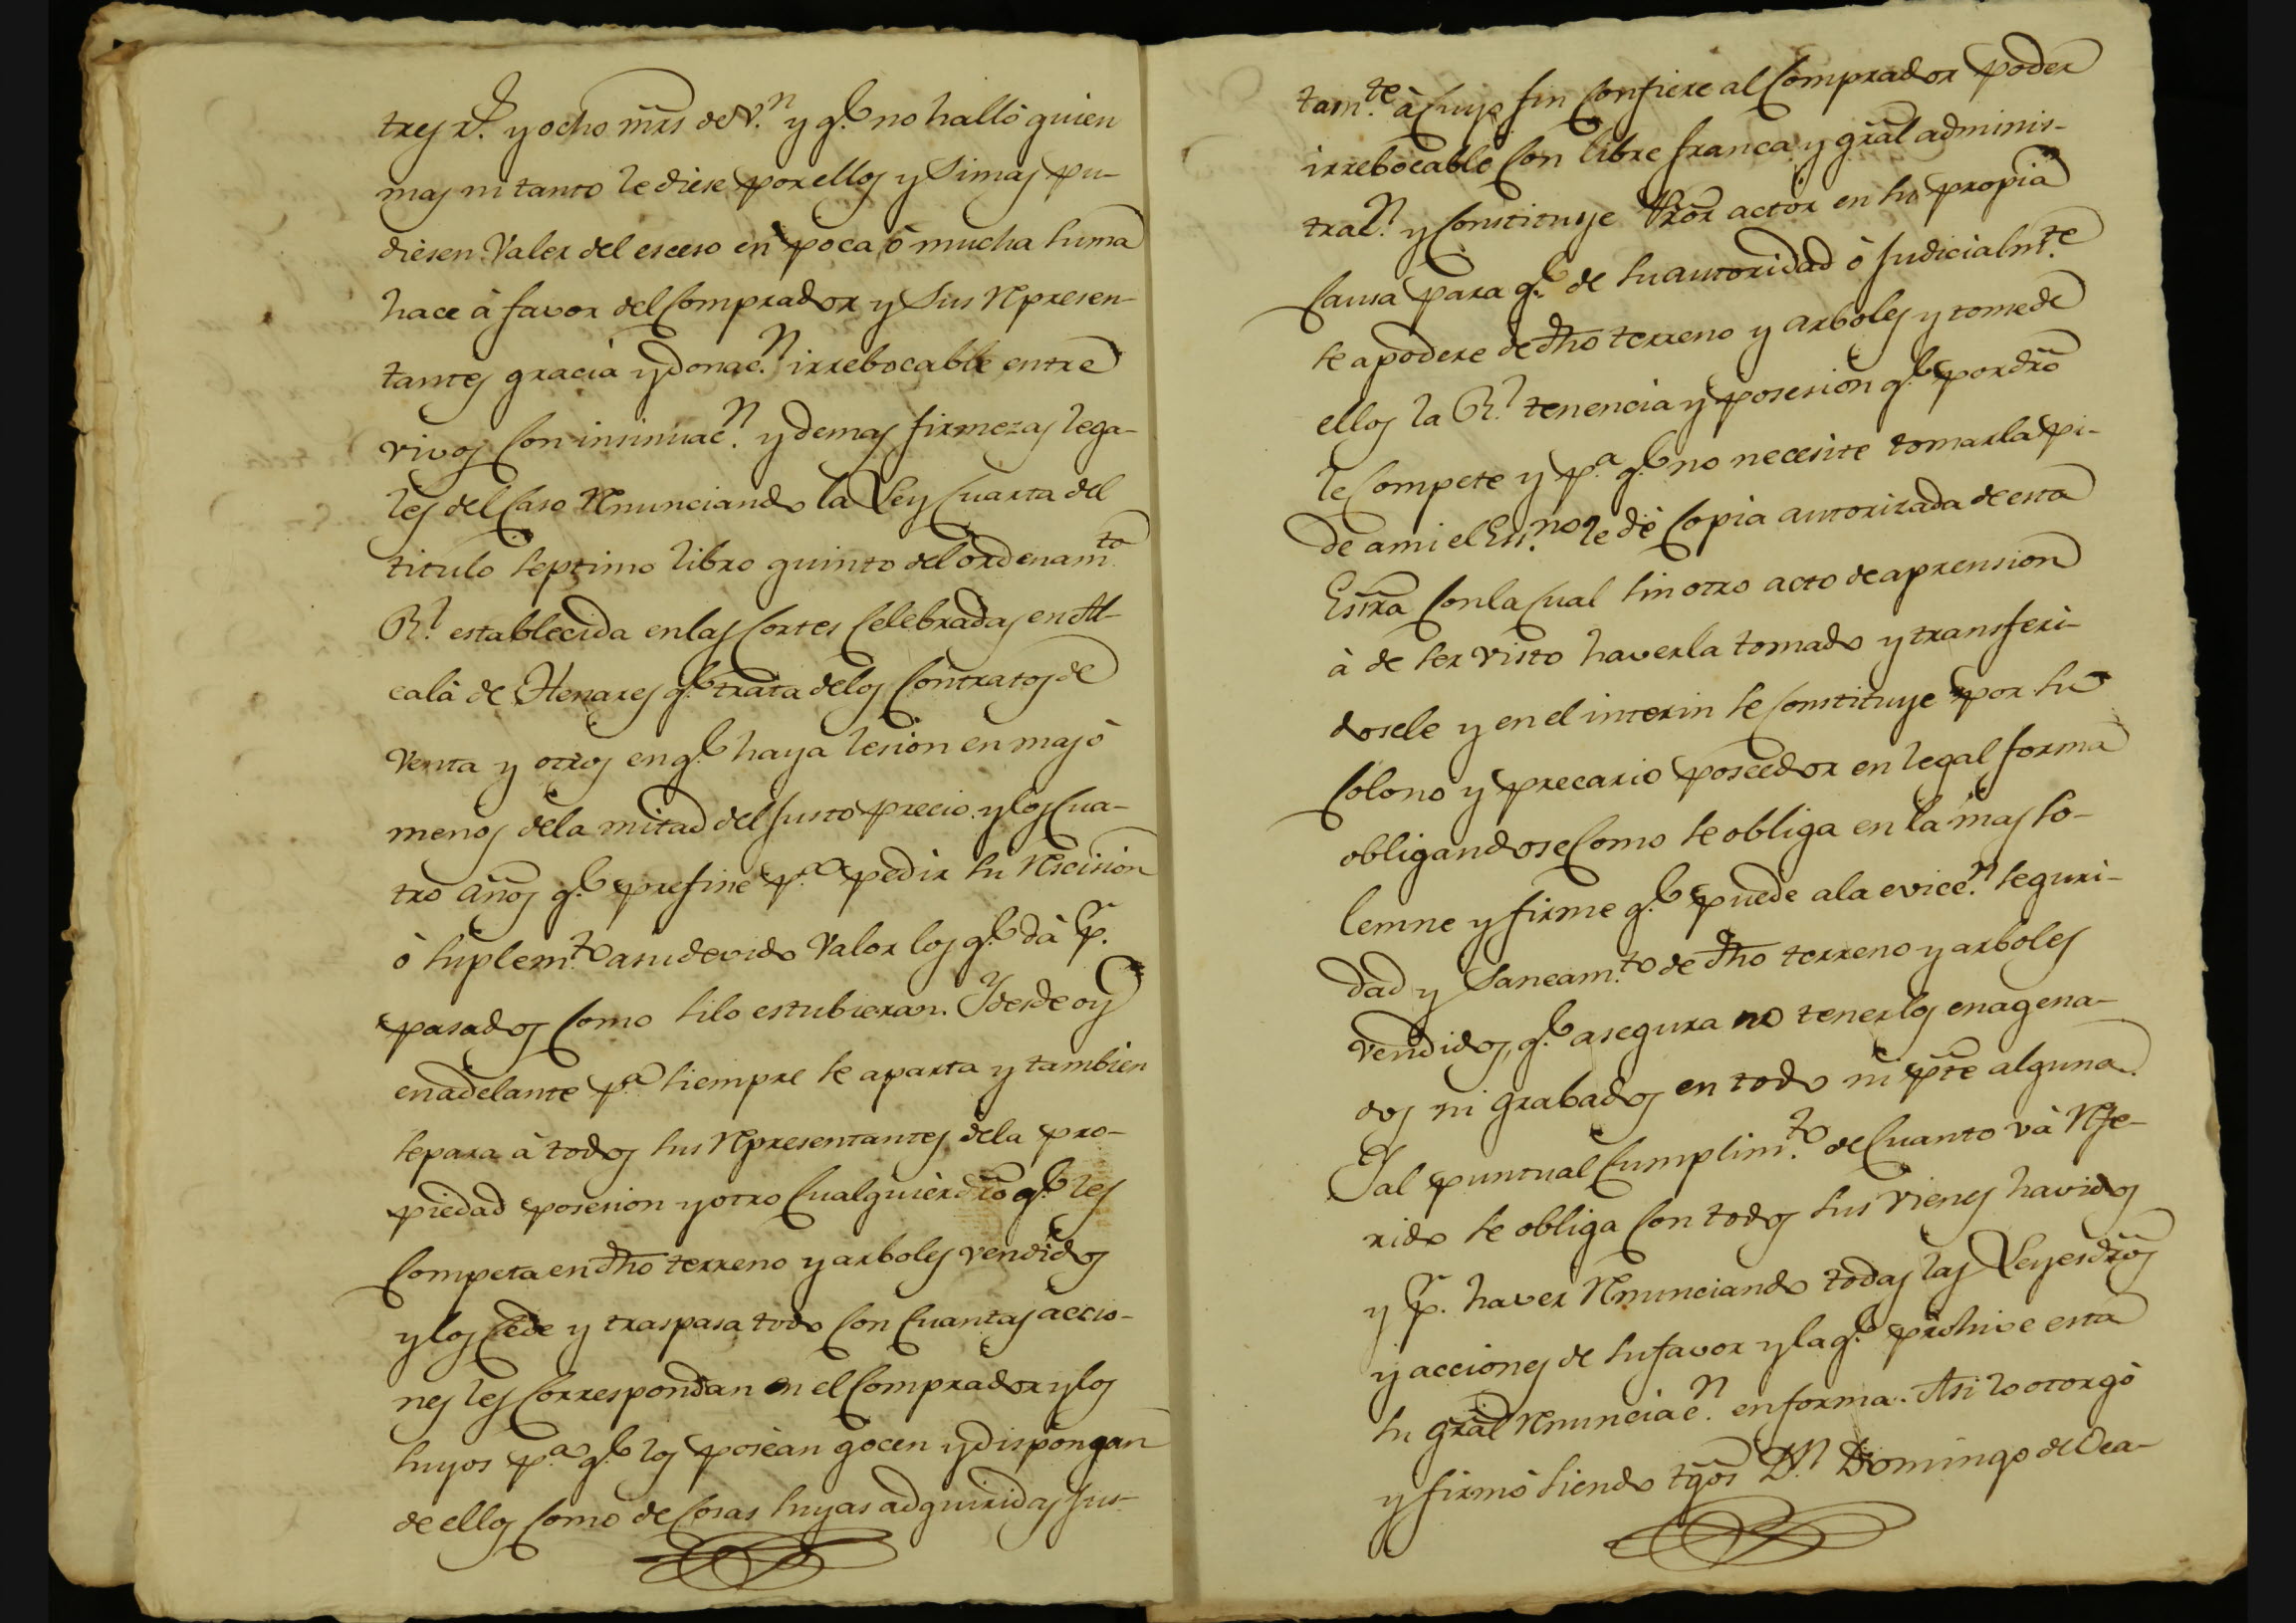 tres r.s y ocho mrs de v.n y q.e no halló quien
mas ni tanto le diese por ellos y si mas pu-
diesen valer del esceso en poca ó mucha suma
hace á favor del Comprador y sus Represen-
tantes gracia y donac.n irrebocable entre
vivos con insinuac.n y demas firmezas lega-
les del Caso Renunciando la Ley Cuarta del
titulo septimo libro quinto del ordenam.to
R.l establecida en las Cortes Celebradas en Al-
calá de Henares q.e trata de los Contratos de
venta y otros en q.e haya lesion en mas ó
menos de la mitad del Justo precio y los Cua-
tro años q.e prefine p.a pedir su Rescision
ó suplem.to a su devido valor los q.e dá p.r
pasados como si lo estubieran. Y desde oy
en adelante p.a siempre se aparta y tambien
separa á todos sus Representantes de la pro-
piedad posesion y otro Cualquier dro q.e les
Competa en dho terreno y arboles vendidos
y los Cede y traspasa todo con Cuantas accio-
nes les Correspondan en el Comprador y los
suyos p.a q.e los posean gocen y dispongan
de ellos como de Cosas suyas adquiridas Jus-
tam.te á Cuyo fin Confiere al Comprador poder
irrebocable Con libre franca y gral adminis-
trac.n y Constituye Pror actor en su propia
Causa para q.e de su autoridad ó Judicialm.te
se apodere de dho terreno y arboles y tome de
ellos la R.l tenencia y posesion q.e por dro
le Compete y p.a q.e no necesite tomarla pi-
de a mi el Ess.no le dé Copia autorizada de esta
Essra Con la Cual sin otro acto de aprension
á de ser visto haverla tomado y transferi-
dosele y en el interin se Constituye por su
Colono y precario poseedor en legal forma
obligandose Como se obliga en la mas so-
lemne y firme q.e puede a la evicc.n seguri-
dad y Saneam.to de dho terreno y arboles
vendidos, q.e asegura no tenerlos enagena-
dos ni grabados en todo ni pte alguna.
Y al puntual Cumplim.to de Cuanto vá Refe-
rido se obliga Con todos sus vienes havidos
y p.r haver Renunciando todas las Leyes dros
y acciones de su favor y la q.e prohive esta
su gral Renunciac.n en forma. Asi lo otorgó
y firmó siendo tgos D.n Domingo de Vea-